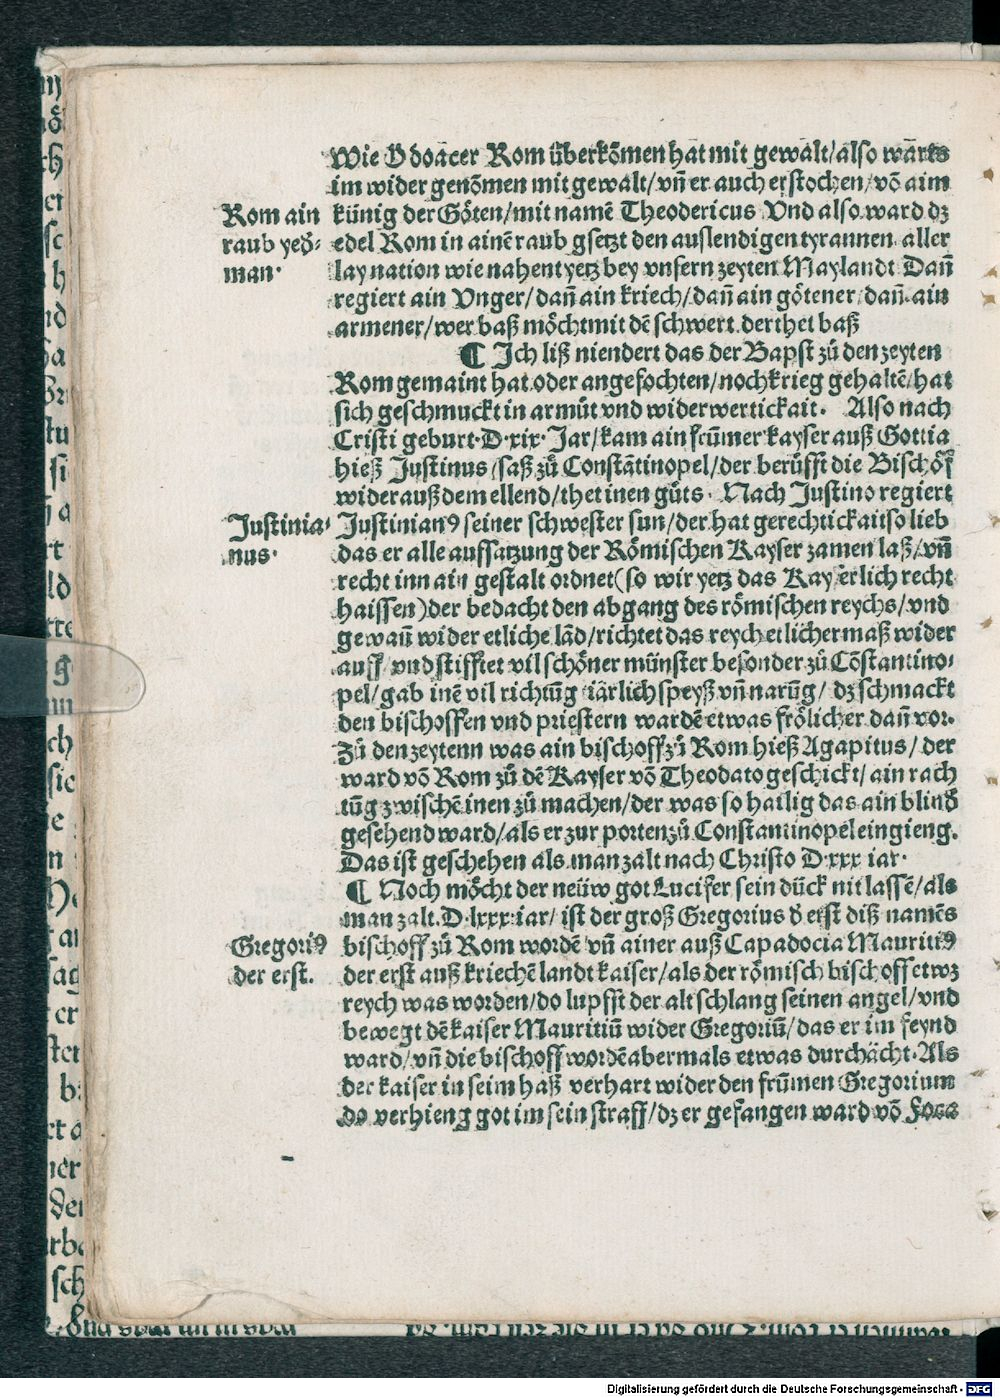 Wie Odoacer Rom überkōmen hat mit gewalt/also warts
im wider genōmen mit gewalt/vn̄ er auch erstochen/vō aim
künig der Göten/mit namē Theodericus Vnd also ward dz
edel Rom in ainē raub gsetzt den auslendigen tyrannen aller
lay nation wie nahent yetz bey vnsern zeyten Maylandt Dan̄
regiert ain Vnger/dan̄ ain kriech/dan̄ ain götener/dan̄ ain
armener/wer baß möcht mit dē schwert der thet baß
Rom ain
raub yed⸗
man·
¶ Ich liß niendert das der Bapst zů den zeyten
Rom gemaint hat oder angefochten/noch krieg gehaltē/hat
sich geschmuckt in armůt vnd widerwertickait. Also nach
Cristi geburt·D·xix·Jar/kam ain frūmer kayser auß Gottia
hieß Justinus/saß zů Constātinopel/der berůfft die Bischöf
wider auß dem ellend/thet inen gůts· Nach Justino regiert
Justinianꝰ seiner schwester sun/der hat gerechtickait so lieb
das er alle auffsatzung der Römischen Kayser zamen laß/vn̄
recht inn ain gestalt ordnet(so wir yetz das Kayserlich recht
haissen)der bedacht den abgang des römischen reychs/vnd
gewan̄ wider etliche lād/richtet das reych etlicher maß wider
auff/vnd stifftet vil schöner münster besonder zů Cōstantino⸗
pel/gab inē vil richtūg iärlich speyß vn̄ narūg/dz schmackt
den bischoffen vnd priestern wardē etwas frölicher dan̄ vor.
Zů den zeytenn was ain bischoff zů Rom hieß Agapitus/der
ward vō Rom zů dē Kayser vō Theodato geschickt/ain rach
tūg zwischē inen zů machen/der was so hailig das ain blind
gesehend ward/als er zur porten zů Constantinopel eingieng.
Das ist geschehen als man zalt nach Christo D·xxx iar·
Justinia⸗
nus·
¶ Noch möcht der neüw got Lucifer sein dück nit lassē/als
man zalt·D·lxxx·iar/ist der groß Gregorius d erst diß namēs
bischoff zů Rom wordē vn̄ ainer auß Capadocia Mauritiꝰ
der erst auß kriechē landt kaiser/als der römisch bischoff etwz
reych was worden/do lupfft der alt schlang seinen angel/vnd
bewegt dē kaiser Mauritiū wider Gregoriū/das er im feynd
ward/vn̄ die bischoff wordē abermals etwas durchächt·Als
der kaiser in seim haß verhart wider den frūmen Gregorium
do verhieng got im sein straff/dz er gefangen ward vō Foca
Gregoriꝰ
der erst.
Digitalisierung gefördert durch die Deutsche Forschungsgemeinschaft - DFG